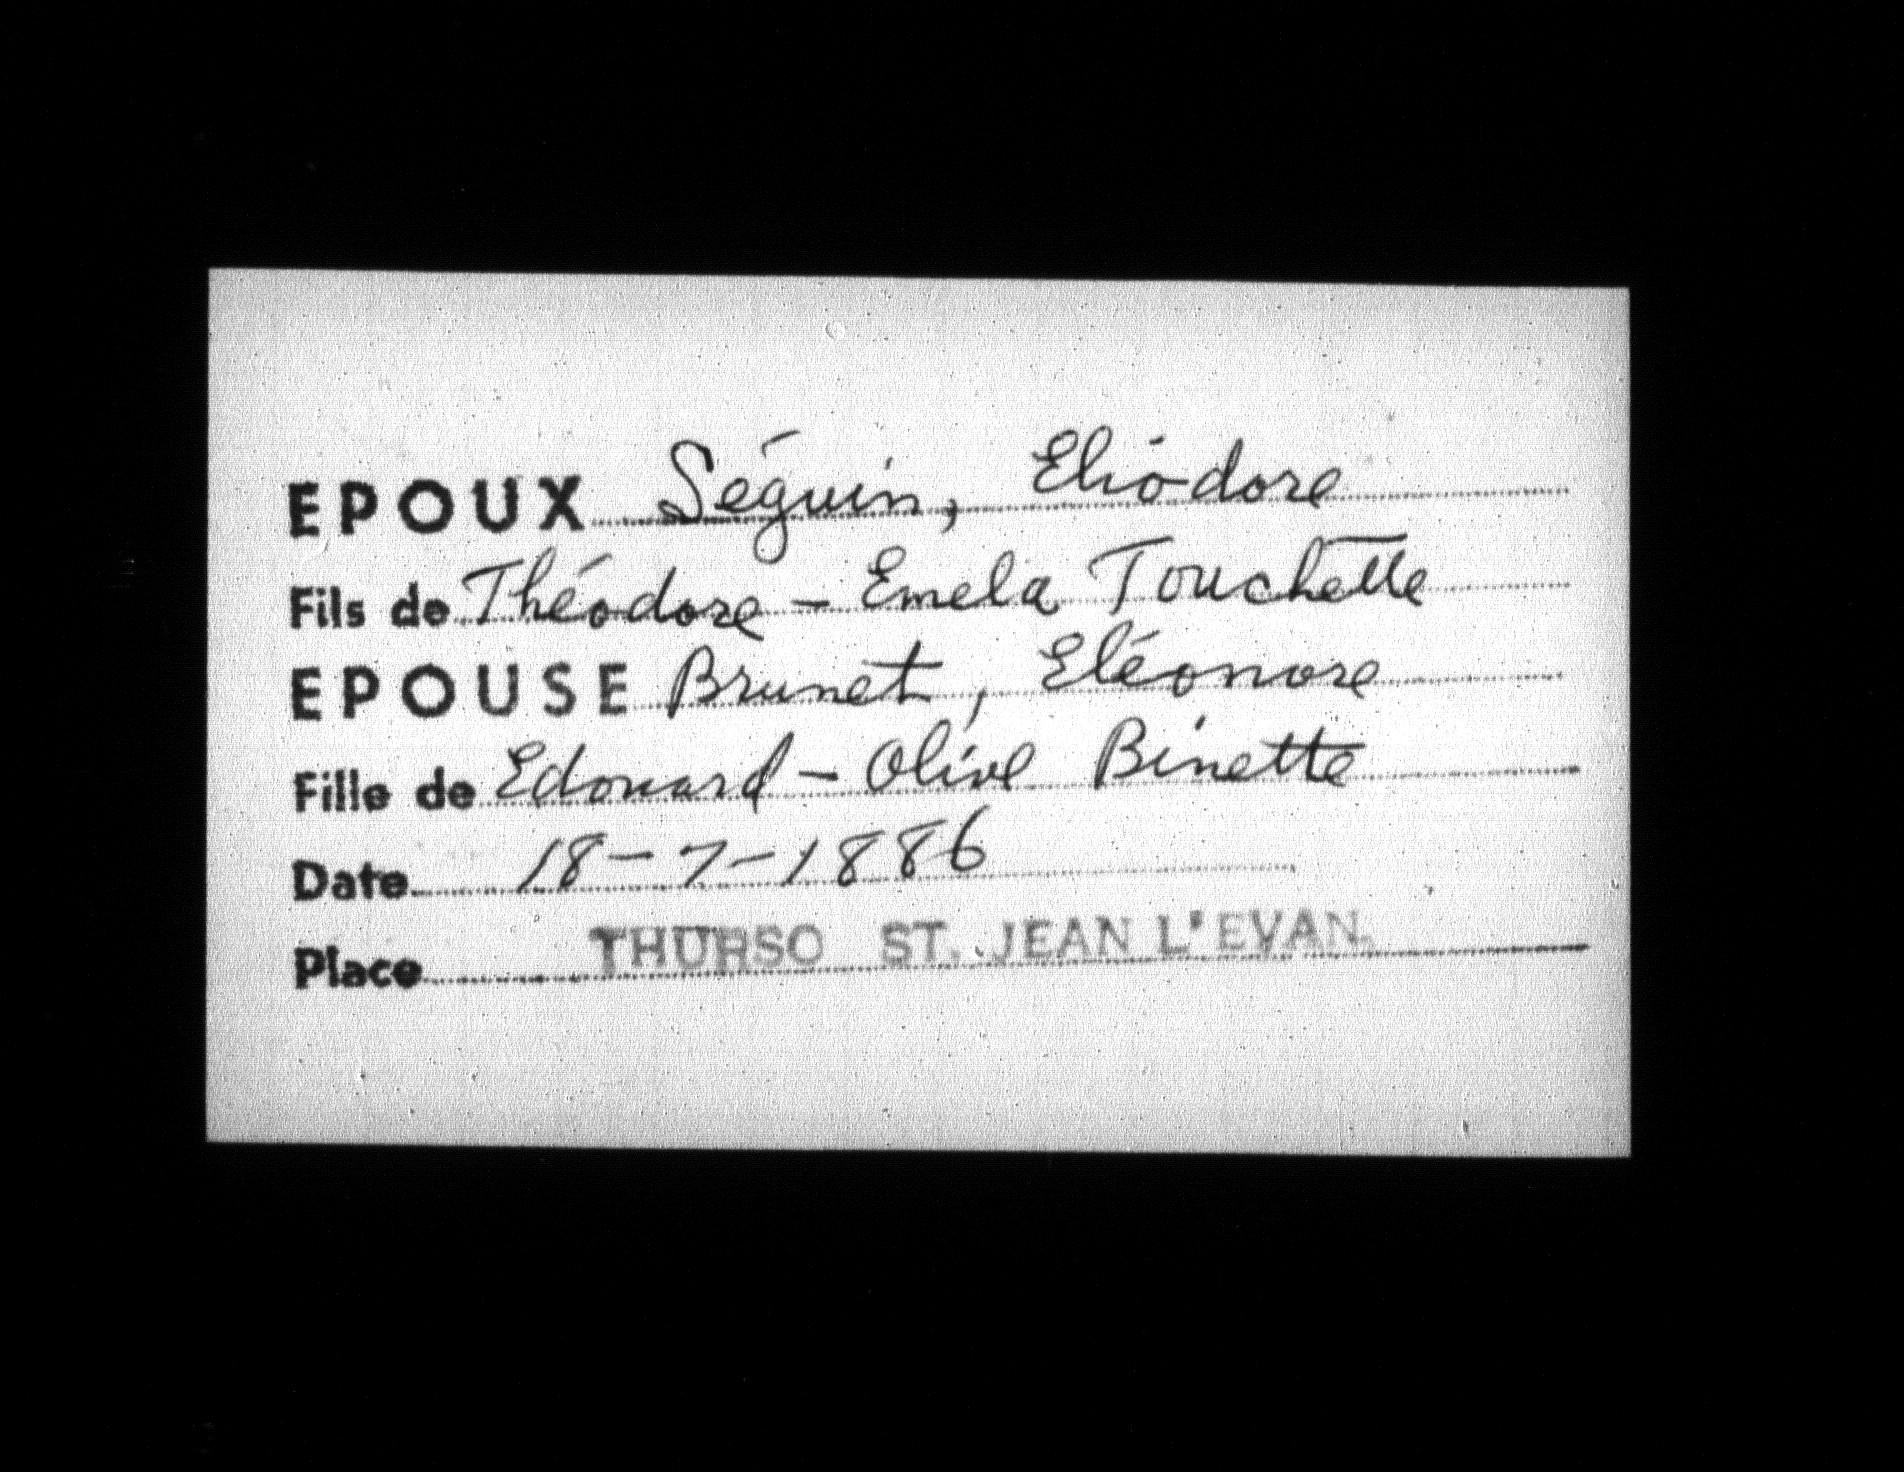 EPOUX Séguin, Eliodore
Fils de Théodore - Emela Touchette
EPOUSE Brunet, Eléonore
Fille de Edouard - Olive Binette
Date 18-7-1886
Place THURSO ST. JEAN L'EVAN.